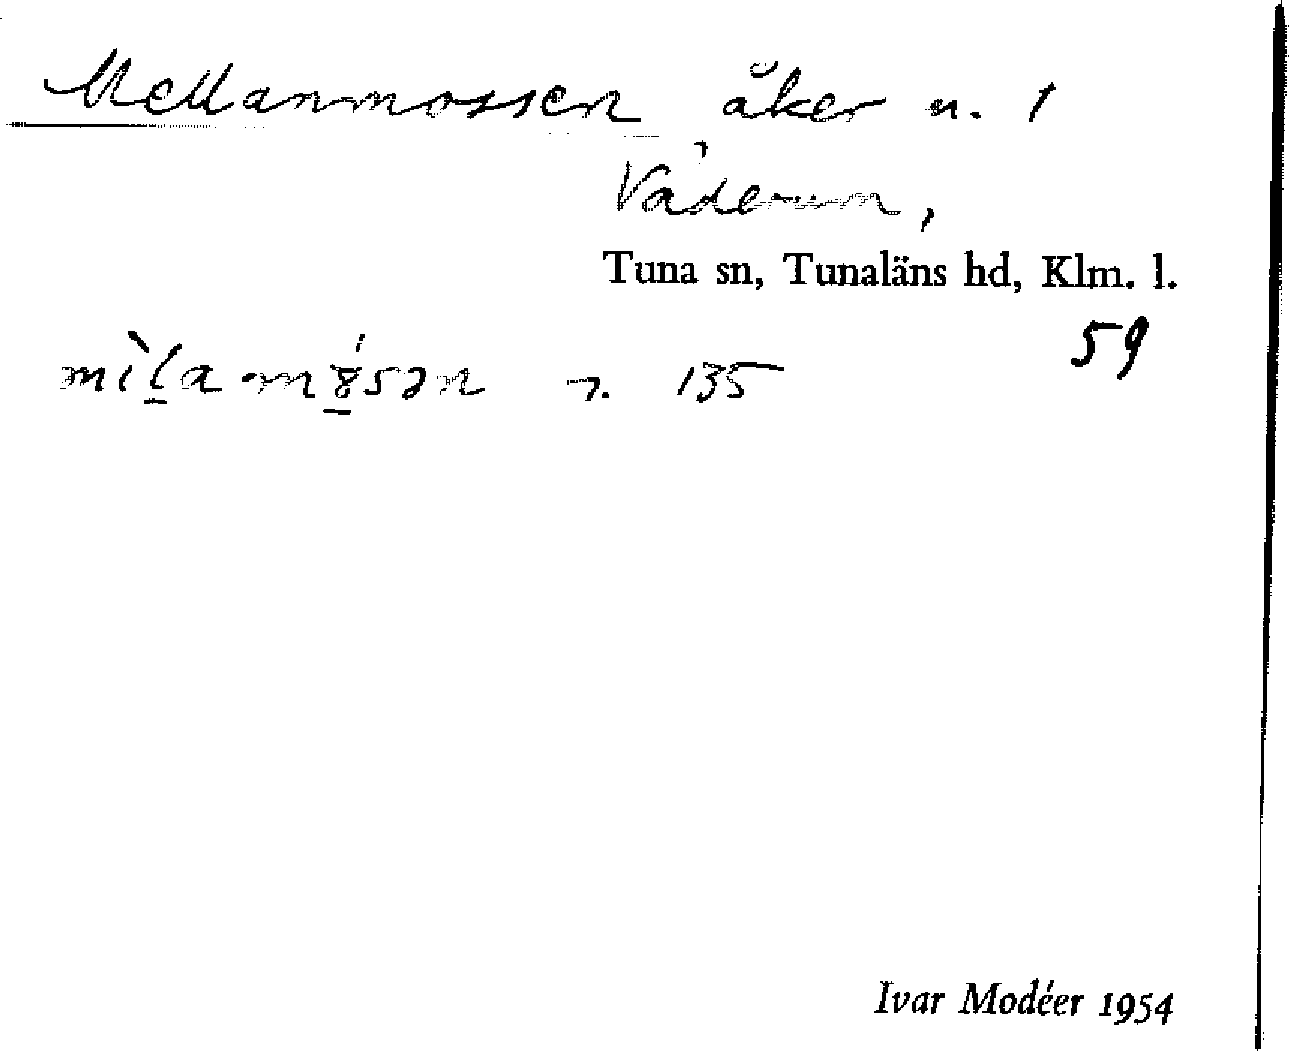 Mellanmossen åker n. 1
Väderum,
Tuna sn, Tunaläns hd, Klm. l.
59
135
Ivar Modéer 1954